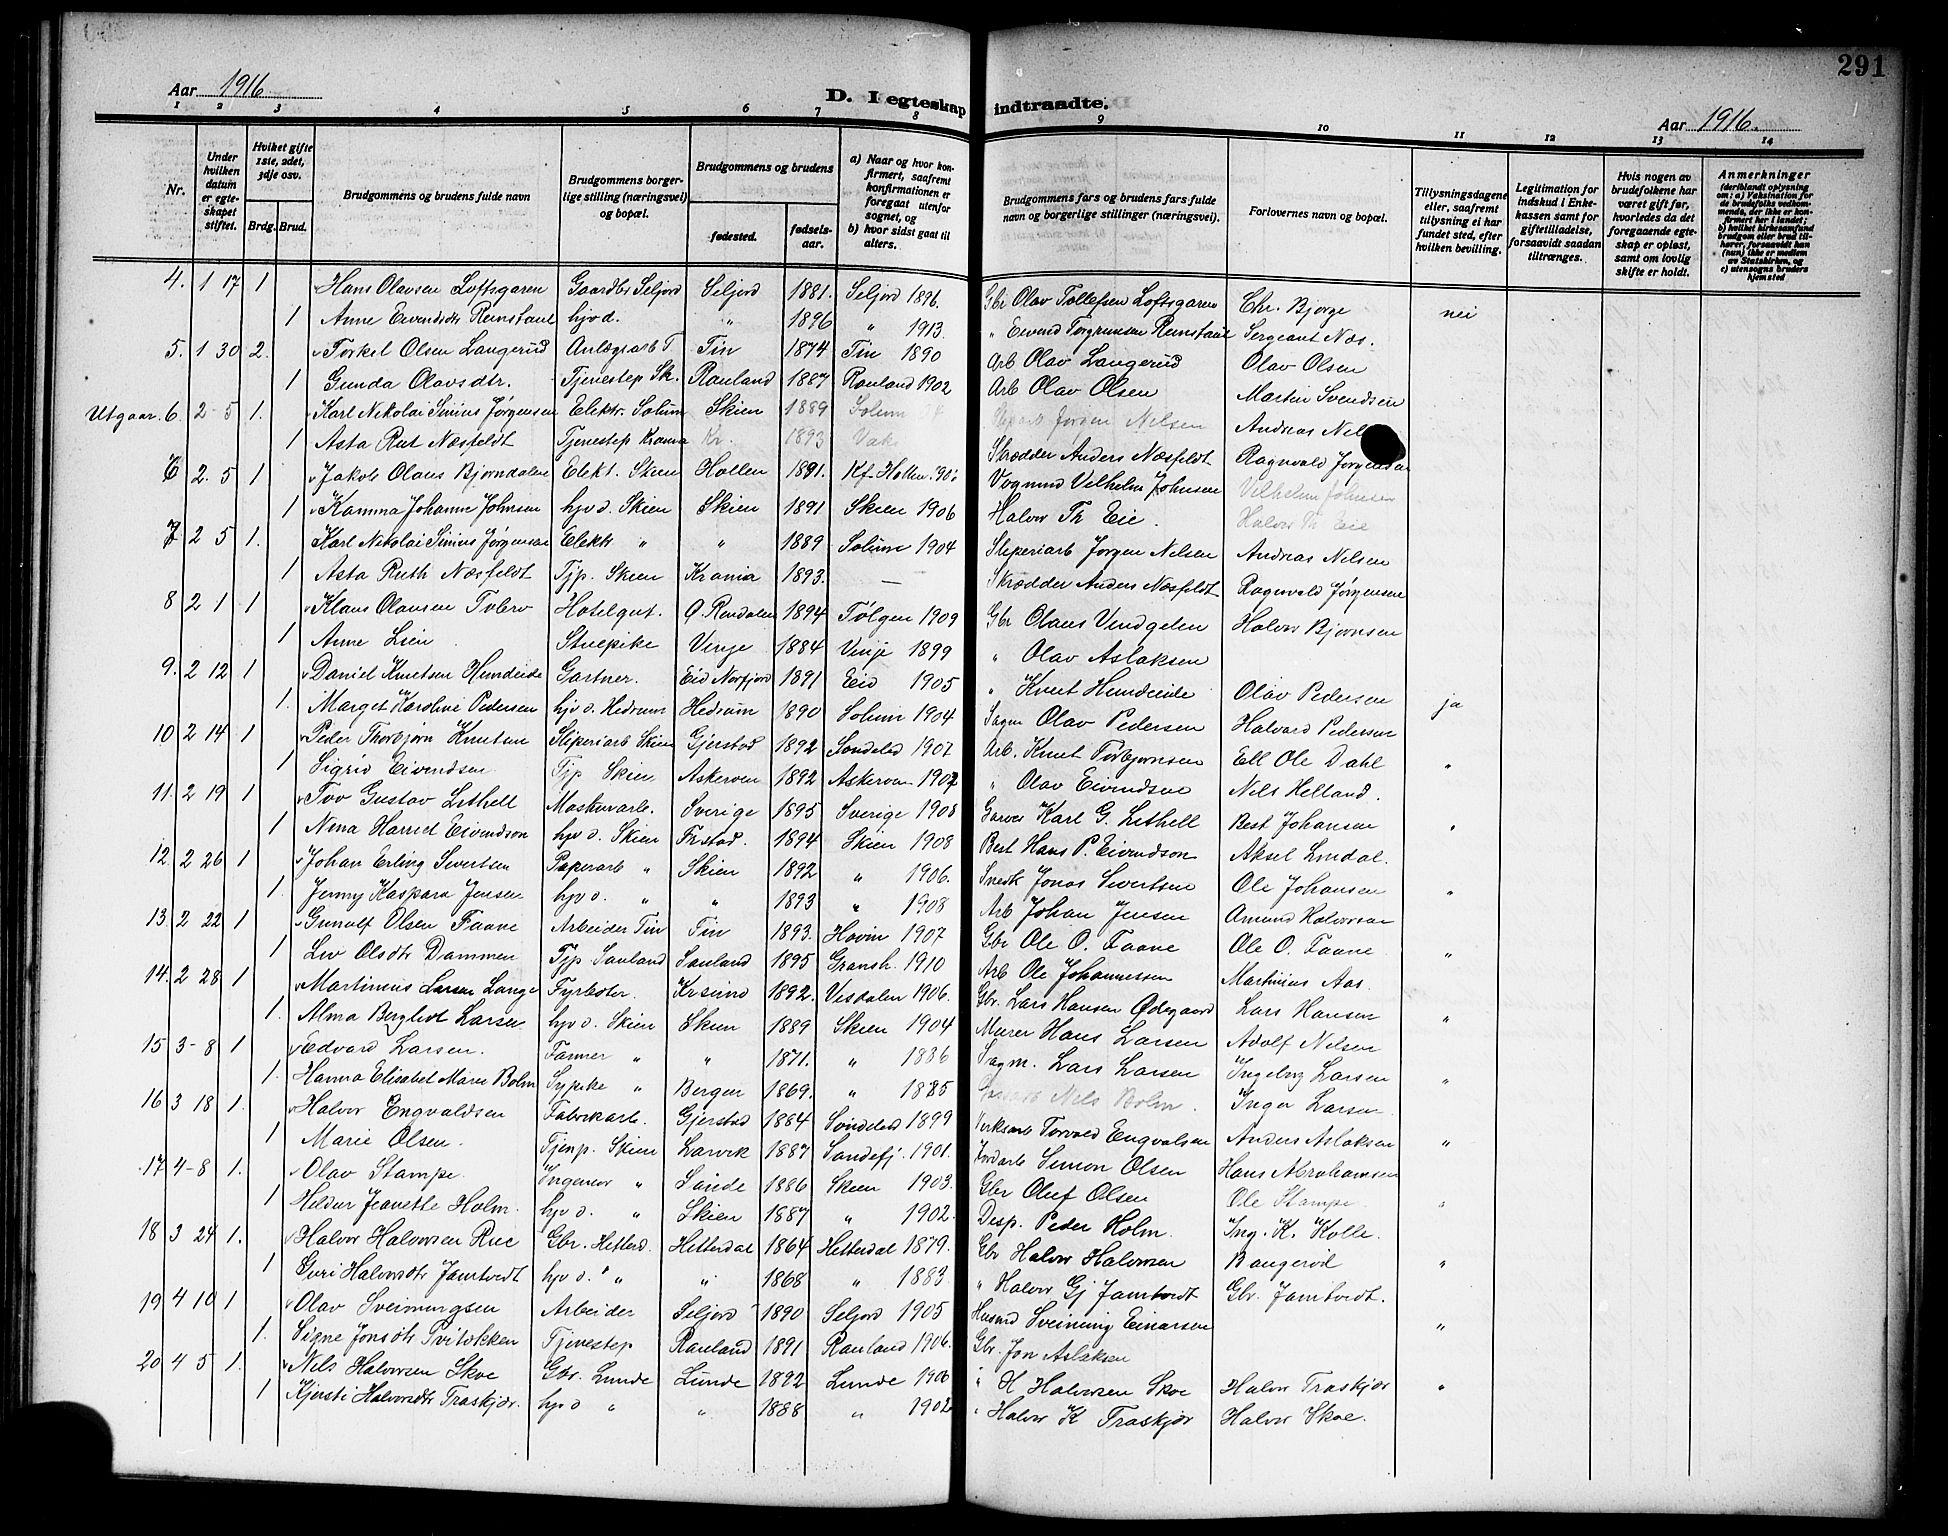 291
Aar 1916. D. I egteskap indtraadte. Aar 1916.
1 2 3 4 5 6 7 8 9 10 11 12 13 14
Nr.
Under hvilken datum er egteskapet stiftet.
Hvilket gifte 1ste, 2det, 3dje osv.
Brdg. Brud.
Brudgommens og brudens fulde navn
Brudgommens borgerlige stilling (næringsvei) og bopæl.
Brudgommens og brudens
fødested. fødselsaar.
a) Naar og hvor konfirmert, saafremt konfirmationen er foregaat utenfor sognet, og
b) hvor sidst gaat til alters.
Brudgommens fars og brudens fars fulde navn og borgerlige stillinger (næringsvei).
Forlovernes navn og bopæl.
Tillysningsdagene eller, saafremt tillysning ei har fundet sted, efter hvilken bevilling.
Legitimation for indskud i Enkekassen samt for giftetilladelse, forsaavidt saadan tiltrænges.
Hvis nogen av brudefolkene har været gift før, hvorledes da det foregaaende egteskap er opløst, samt om lovlig skifte er holdt.
Anmerkninger
(deriblandt oplysning om: a) Vaksination for de brudefolks vedkommende, der ikke er konfirmert her i landet; b) hvilket kirkesamfund brudgom eller brud tilhører, forsaavidt han (hun) ikke er medlem av Statskirken, og c) utensogns bruders hjemsted
4. 1 17 1 Hans Olavsen Loftsgaren Gaardbr Seljord Seljord 1881. Seljord 1896. Gbr Olav Tollefsen Loftsgaren Chr. Bjorge nei
1 Anne Eivendsdtr Remstaul hjv d. " 1896 " 1913. " Eivend Torgrimsen Remstaul Sergeant Næs.
5. 1 30 2. Torkel Olsen Langerud Anlægsarb T. Tin 1874 Tin 1890 Arb Olav Langerud Olav Olsen
1 Gunda Olavsdtr. Tjenestep Sk. Rauland 1887 Rauland 1902 Arb Olav Olsen Martin Svendsen
Utgaar. 6. 2-5 1. Karl Nikolai Sinius Jørgensen Elektr. Solum Skien 1889 Solum Jørgen Nilsen Andreas Nils
1 Asta Rut Næsfeldt Tjenestep Krania Kr. 1893 Vaks Skrædder Anders Næsfeldt Ragnvald Jørgensen
6 2. 5 1 Jakob Olaus Bjørndalen Elekt. Skien Hollen 1891. Kf. Hollen. Vogmnd Vilhelm Johnsen Vilhelm Johnsen
1 Kamma Johanne Johnsen hjv d. Skien Skien 1891 Skien 1906 Halvor Th Eie. Halvor Th Eie
7 2 5 1. Karl Nikolai Sinius Jørgensen Elektr " " 1889 Solum 1904 Sliperiarb Jørgen Nilsen Andreas Nilsen
1 Asta Ruth Næsfeldt Tjp. Skien Krania 1893. — Skrædder Anders Næsfeldt Ragnvald Jørgensen
8 2 1 1 Klaus Olausen Tobro Hotelgut. Ø. Rendalen 1894 Tolgen 1909 Gbr Olaus Vindgelen Halvor Bjørnsen
1 Anne Lien Stuepike Vinje 1884 Vinje 1899 " Olav Aslaksen
9. 2 12 1 Daniel Knutsen Hundeide Gartner. Eid Norfjord 1891 Eid 1905 " Knut Hundeide Olav Pedersen ja
1. Marget Karoline Pedersen hjv d. Hedrum Hedrum 1890 Solum 1904 Sagm Olav Pedersen Halvard Pedersen
10 2 14 1 Peder Thorbjørn Knutsen Sliperiarb Skien Gjerstad 1892 Søndeled 1907 Arb. Knut Torbjørnsen Ell Ole Dahl "
1 Sigrid Eivendsen Tjp Skien Askerøen 1892 Askerøen 1907 " Olav Eivendsen Nils Helland.
11. 2 19 1 Tov Gustav Lithell Maskinarb. Sverige 1895 Sverige 1908 Garver Karl G. Lithell Best Johansen "
1 Nina Harriet Eivendson hjv d. Skien Frstad. 1894 Skien 1908 Best Hans P. Eivendson Aksel Lindal.
12 2 26 1 Johan Erling Sivertsen Paperarb " Skien 1892 " 1906. Snedk Jonas Sivertsen Ole Johansen "
1. Jenny Kaspara Jensen hjv d. " " 1893 " 1908 Arb Johan Jensen Amund Halvorsen
13. 2 22 1 Gunulf Olsen Faane Arbeider Tin Tin 1893. Hovin 1907 Gbr Ole O. Faane Ole O. Faane "
1 Liv Olsdtr Dammen Tjp. Sauland Sauland 1895 Gransh. 1910 Arb Ole Johannessen Martinius Aas.
14. 2 28 1 Martinius Larsen Lange Fyrbøter. Krsund 1892. Visdalen 1906. Gbr. Lars Hansen Ødegaard Lars Hansen "
1. Alma Bergliot Larsen hjv d. Skien Skien 1889 Skien 1904 Murer Hans Larsen Adolf Nilsen
15 3-8 1 Edvard Larsen. Farmer " " 1871. " 1886 Sagm. Lars Larsen Ingeborg Larsen "
1. Hanna Elisabet Marie Bolm Sypike " Bergen 1869. " 1885 Nils Bolm. Inger Larsen
16 3 18 1. Halvor Engvaldsen Fabrikarb. Gjerstad 1884 Søndeled 1899 Verksarb Torvald Engvalsen Anders Aslaksen "
1 Marie Olsen. Tjenp. Skien Larvik 1887 Sandefj. 1901. Jordarb Simon Olsen Hans Abrahamsen
17 4-8 1. Olav Stampe. Ingeniør " Saude 1886 Skien 1903. Gbr Oluf Olsen Ole Stampe "
1 Hildur Jeanette Holm. hjv d. " Skien 1887 " 1902. Desp. Peder Holm. Ing. K. Kolle.
18 3 24 1. Halvor Halvorsen Rue Gbr. Hitterd. Hitterdal 1864 Hitterdal 1879. Gbr Halvor Halvorsen Bangerød "
1 Guri Halvorsdtr Jamtvedt hjv d. " " 1868 " 1883 " Halvor Gj Jamtvedt Gbr. Jamtvedt.
19 4 10 1 Olav Sveinungsen Arbeider Seljord 1890 Seljord 1905 Husmd Sveinung Einarsen "
1. Signe Jonsdtr Svitækken Tjenestep Rauland 1891 Rauland 1906. Gbr. Jon Aslaksen
20 4 5 1. Nils Halvorsen Skoe Gbr. Lunde Lunde 1892 Lunde 1906 " H Halvorsen Skoe Halvor Traskjør "
1 Kjersti Halvorsdtr Traskjør. hjv d " " 1888 " 1902 " Halvor K Traskjør Halvor Skoe.